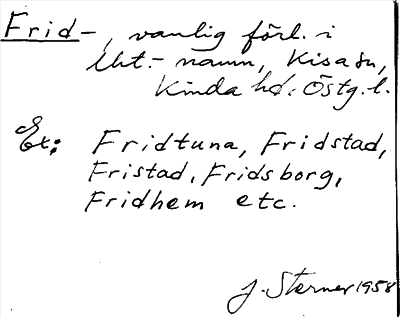 Frid-, vanlig förl. i
Uht.-namn, Kisa sn,
Kinda hd. Östg.l.
Ex: Fridtuna, Fridstad,
Fristad, Fridsborg,
Fridhem etc.
J. Sterner 1958